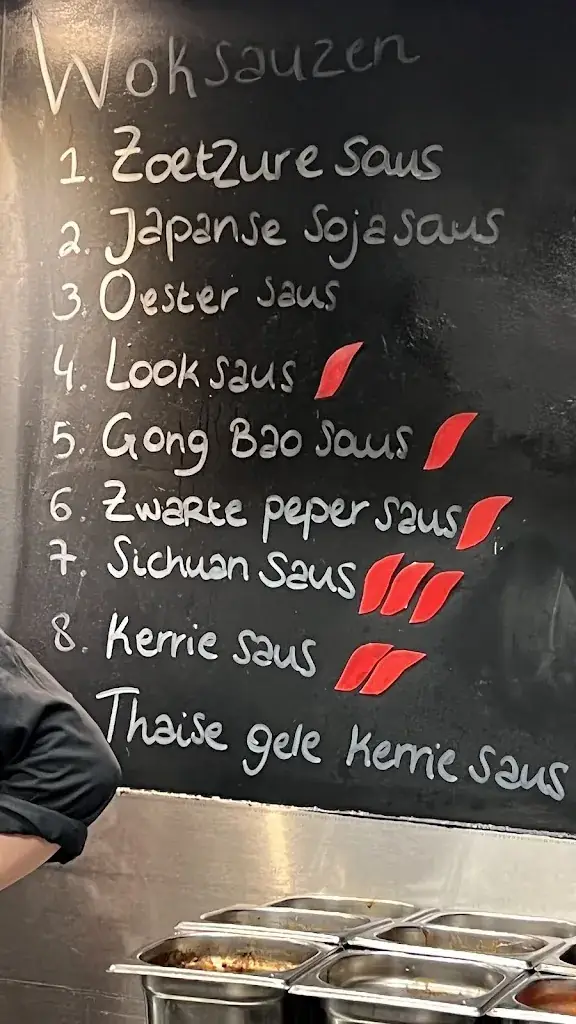 Woksauzen
1. Zoetzure saus
2. Japanse sojasaus
3. Oester saus
4. Look saus
5. Gong Bao saus
6. Zwarte peper saus
7. Sichuan saus
8. Kerrie saus
Thaise gele kerrie saus